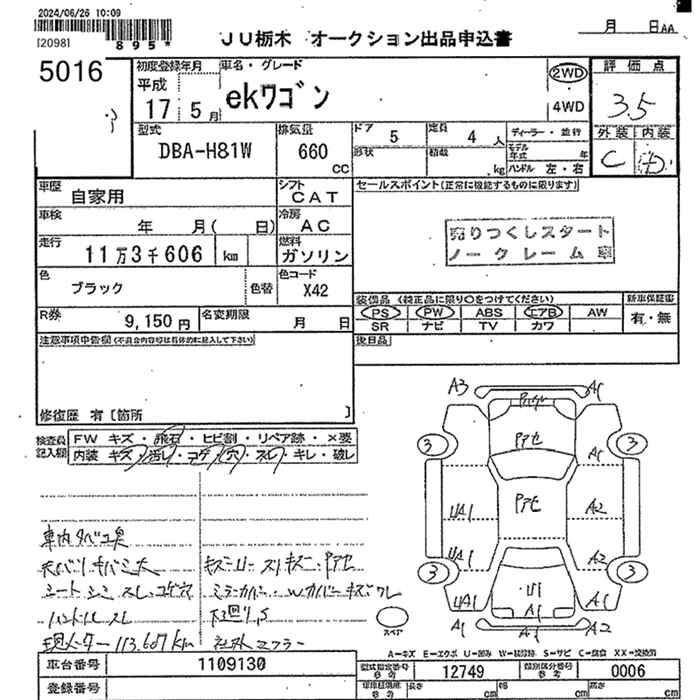 2024/06/26 10:09
[2098]
895*
JU栃木 オークション出品申込書
月 日AA
5016
初度登録年月
平成
17 5月
車名・グレード
ekワゴン
2WD
4WD
評価点
3.5
外装 内装
C
型式
DBA-H81W
排気量
660 CC
ドア 5
定員 4 人
形状
積載 kg
ディーラー・並行
モデル年式 年
ハンドル 左・右
車歴
自家用
シフト
CAT
車検
年 月( 日)
冷房
AC
走行
11万3千606 km
燃料
ガソリン
色
ブラック
色替
色コード
X42
R券
9,150円
名変期限
月 日
セールスポイント(正常に機能するものに限ります)
売りつくしスタート
ノークレーム車
装備品 (純正品に限り○をつけてください)
PS PW ABS エアB AW
SR ナビ TV カワ
新車保証書
有・無
後日品
注意事項申告欄(不具合内容は具体的に記入して下さい)
修復歴 有〔箇所 〕
検査員記入欄
FW キズ・飛石・ヒビ割・リペア跡・×要
内装 キズ・汚レ・コゲ・穴・スレ・キレ・破レ
車内タバコ臭
シートシミ スレ コゲ穴
ハンドルスレ
現メーター 113,607km
社外マフラー
A3
A1
3
3
Pアセ
Pアセ
A1
UA1
A2
UA1
A2
3
3
UA1
U1
A1
A1
A1
A2
スペア
A=キズ E=エクボ U=凹み W=補修跡 S=サビ C=腐食 XX=交換済
車台番号
1109130
登録番号
型式指定番号
参考
12749
類別区分番号
参考
0006
長さ cm
幅 cm
高さ cm